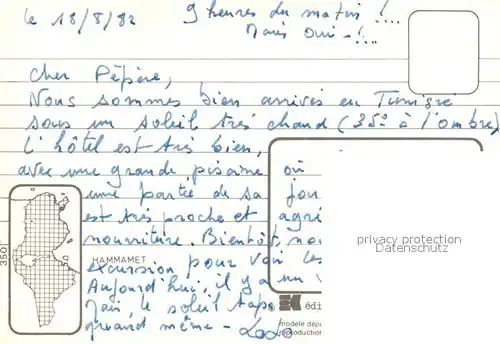 le 18/8/82
9 heures du matin !....
Mais oui - !...
Cher Pépère,
Nous sommes bien arrivés en Tunisie
sous un soleil très chaud (35° à l'ombre)
L'hôtel est très bien,
avec une grande piscine où
une partie de sa jou
est très proche et agré
nourriture. Bientôt, no
HAMMAMET
excursion pour voir les
Aujourd'hui, il y a un v
Mais, le soleil tape
quand même -
350
privacy protection
Datenschutz
EK édi
modèle dépo
reproduction